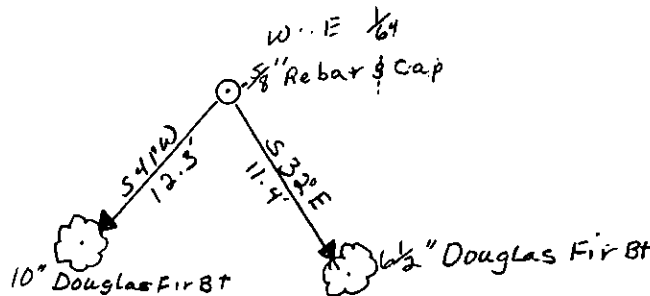 W·· E 1/64
5/8" Rebar & Cap
S 41° W
12.3'
S 32° E
11.4'
10" Douglas Fir Bt
6 1/2" Douglas Fir Bt